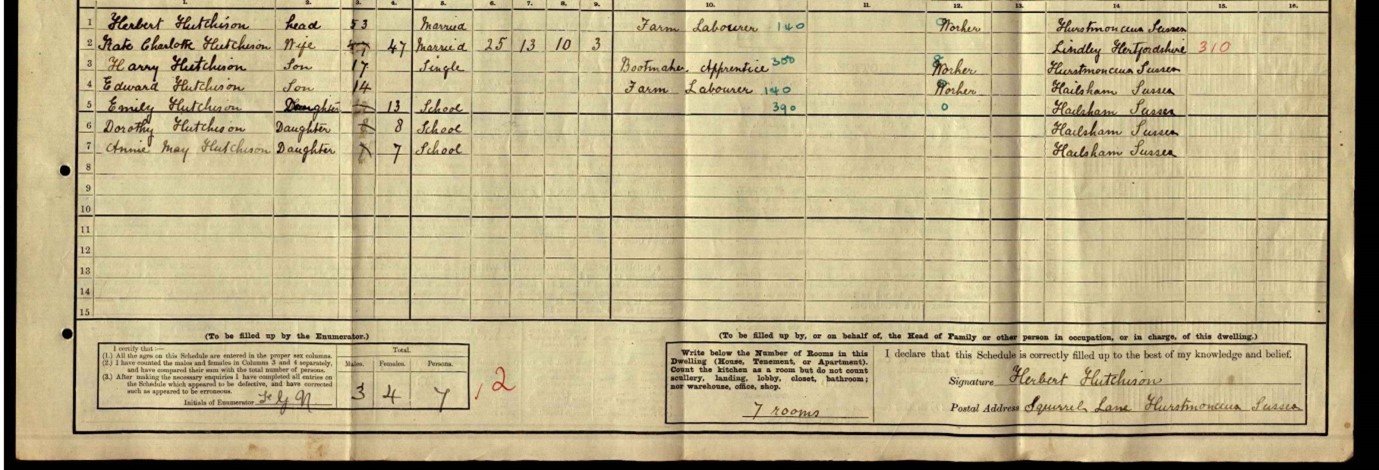 1. 2. 3. 4. 5. 6. 7. 8. 9. 10. 11. 12. 13. 14. 15. 16.
1 Herbert Hutchison head 53 Married Farm Labourer 140 Worker Hurstmonceux Sussex
2 Kate Charlotte Hutchison Wife 47 47 Married 25 13 10 3 Lindley Hertfordshire 310
3 Harry Hutchison Son 17 Single Bootmaker Apprentice 300 8 Worker Hurstmonceux Sussex
4 Edward Hutchison Son 14 Farm Labourer 140 Worker Hailsham Sussex
5 Emily Hutchison Daughter 13 School 390 0 Hailsham Sussex
6 Dorothy Hutchison Daughter 8 8 School Hailsham Sussex
7 Annie May Hutchison Daughter 7 7 School Hailsham Sussex
8
9
10
11
12
13
14
15
(To be filled up by the Enumerator.)
I certify that:—
(1.) All the ages on this Schedule are entered in the proper sex columns.
(2.) I have counted the males and females in Columns 3 and 4 separately, and have compared their sum with the total number of persons.
(3.) After making the necessary enquiries I have completed all entries on the Schedule which appeared to be defective, and have corrected such as appeared to be erroneous.
Initials of Enumerator
Total.
Males. Females. Persons.
3 4 7
12
(To be filled up by, or on behalf of, the Head of Family or other person in occupation, or in charge, of this dwelling.)
Write below the Number of Rooms in this
Dwelling (House, Tenement, or Apartment).
Count the kitchen as a room but do not count
scullery, landing, lobby, closet, bathroom;
nor warehouse, office, shop.
7 rooms
I declare that this Schedule is correctly filled up to the best of my knowledge and belief.
Signature Herbert Hutchison
Postal Address Squirrel Lane Hurstmonceux Sussex